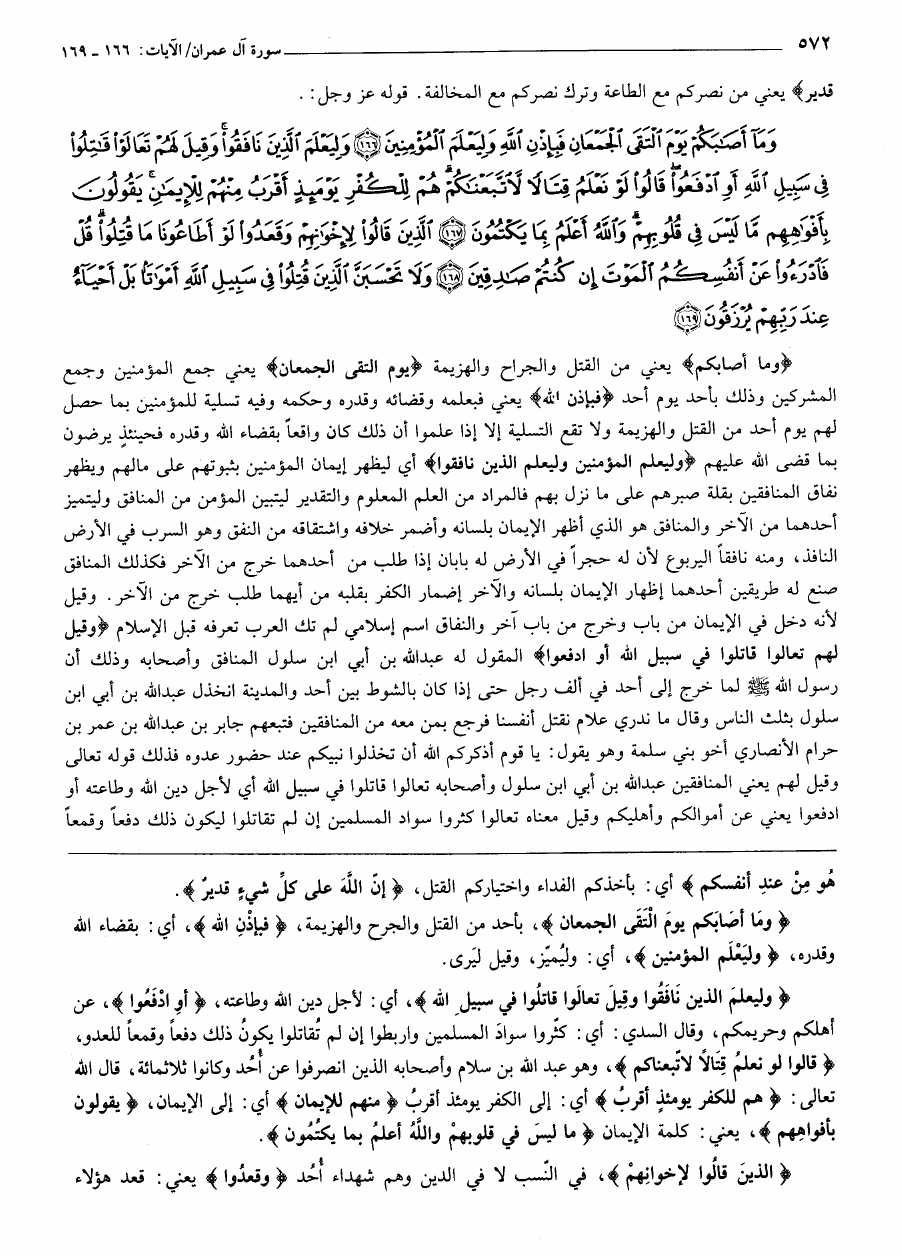 ٥٧٢ سورة آل عمران/ الآيات: ١٦٦ ـ ١٦٩
قدير﴾ يعني من نصركم مع الطاعة وترك نصركم مع المخالفة. قوله عز وجل: .
وَمَآ أَصَٰبَكُمْ يَوْمَ ٱلْتَقَى ٱلْجَمْعَانِ فَبِإِذْنِ ٱللَّهِ وَلِيَعْلَمَ ٱلْمُؤْمِنِينَ ﴿١٦٦﴾ وَلِيَعْلَمَ ٱلَّذِينَ نَافَقُوا۟ۚ وَقِيلَ لَهُمْ تَعَالَوْا۟ قَٰتِلُوا۟
فِى سَبِيلِ ٱللَّهِ أَوِ ٱدْفَعُوا۟ۖ قَالُوا۟ لَوْ نَعْلَمُ قِتَالًا لَّٱتَّبَعْنَٰكُمْۗ هُمْ لِلْكُفْرِ يَوْمَئِذٍ أَقْرَبُ مِنْهُمْ لِلْإِيمَٰنِۚ يَقُولُونَ
بِأَفْوَٰهِهِم مَّا لَيْسَ فِى قُلُوبِهِمْۗ وَٱللَّهُ أَعْلَمُ بِمَا يَكْتُمُونَ ﴿١٦٧﴾ ٱلَّذِينَ قَالُوا۟ لِإِخْوَٰنِهِمْ وَقَعَدُوا۟ لَوْ أَطَاعُونَا مَا قُتِلُوا۟ۗ قُلْ
فَٱدْرَءُوا۟ عَنْ أَنفُسِكُمُ ٱلْمَوْتَ إِن كُنتُمْ صَٰدِقِينَ ﴿١٦٨﴾ وَلَا تَحْسَبَنَّ ٱلَّذِينَ قُتِلُوا۟ فِى سَبِيلِ ٱللَّهِ أَمْوَٰتًۢا بَلْ أَحْيَآءٌ
عِندَ رَبِّهِمْ يُرْزَقُونَ ﴿١٦٩﴾
﴿وما أصابكم﴾ يعني من القتل والجراح والهزيمة ﴿يوم التقى الجمعان﴾ يعني جمع المؤمنين وجمع
المشركين وذلك بأحد يوم أحد ﴿فبإذن الله﴾ يعني فبعلمه وقضائه وقدره وحكمه وفيه تسلية للمؤمنين بما حصل
لهم يوم أحد من القتل والهزيمة ولا تقع التسلية إلا إذا علموا أن ذلك كان واقعاً بقضاء الله وقدره فحينئذ يرضون
بما قضى الله عليهم ﴿وليعلم المؤمنين وليعلم الذين نافقوا﴾ أي ليظهر إيمان المؤمنين بثبوتهم على مالهم ويظهر
نفاق المنافقين بقلة صبرهم على ما نزل بهم فالمراد من العلم المعلوم والتقدير ليتبين المؤمن من المنافق وليتميز
أحدهما من الآخر والمنافق هو الذي أظهر الإيمان بلسانه وأضمر خلافه واشتقاقه من النفق وهو السرب في الأرض
النافذ، ومنه نافقاً اليربوع لأن له حجراً في الأرض له بابان إذا طلب من أحدهما خرج من الآخر فكذلك المنافق
صنع له طريقين أحدهما إظهار الإيمان بلسانه والآخر إضمار الكفر بقلبه من أيهما طلب خرج من الآخر. وقيل
لأنه دخل في الإيمان من باب وخرج من باب آخر والنفاق اسم إسلامي لم تك العرب تعرفه قبل الإسلام ﴿وقيل
لهم تعالوا قاتلوا في سبيل الله أو ادفعوا﴾ المقول له عبدالله بن أبي ابن سلول المنافق وأصحابه وذلك أن
رسول الله ﷺ لما خرج إلى أحد في ألف رجل حتى إذا كان بالشوط بين أحد والمدينة انخذل عبدالله بن أبي ابن
سلول بثلث الناس وقال ما ندري علام نقتل أنفسنا فرجع بمن معه من المنافقين فتبعهم جابر بن عبدالله بن عمر بن
حرام الأنصاري أخو بني سلمة وهو يقول: يا قوم أذكركم الله أن تخذلوا نبيكم عند حضور عدوه فذلك قوله تعالى
وقيل لهم يعني المنافقين عبدالله بن أبي ابن سلول وأصحابه تعالوا قاتلوا في سبيل الله أي لأجل دين الله وطاعته أو
ادفعوا يعني عن أموالكم وأهليكم وقيل معناه تعالوا كثروا سواد المسلمين إن لم تقاتلوا ليكون ذلك دفعاً وقمعاً
هُو مِنْ عندِ أنفسكم ﴾ أي: بأخذكم الفداء واختياركم القتل، ﴿ إنّ اللَّهَ على كلِّ شيءٍ قديرٌ ﴾.
﴿ ومَا أصَابَكم يومَ الْتَقَى الجمعان ﴾، بأحد من القتل والجرح والهزيمة، ﴿ فبإذْنِ الله ﴾، أي: بقضاء الله
وقدره، ﴿ وليَعْلَم المؤمنين ﴾، أي: وليُميّز، وقيل لَيَرى.
﴿ وليعلمَ الذين نَافَقُوا وقِيلَ تعالَوا قاتلُوا في سبيل الله ﴾، أي: لأجل دين الله وطاعته، ﴿ أو ادْفَعُوا ﴾، عن
أهلكم وحريمكم، وقال السدي: أي: كثّروا سوادَ المسلمين واربطوا إن لم تُقاتلوا يكونُ ذلك دفعاً وقمعاً للعدو،
﴿ قالوا لو نعلمُ قِتَالاً لاتّبعناكم ﴾، وهو عبد الله بن سلام وأصحابه الذين انصرفوا عن أُحُد وكانوا ثلاثمائة، قال الله
تعالى: ﴿ هم للكفر يومئذٍ أقربُ ﴾ أي: إلى الكفر يومئذ أقربُ ﴿ منهم للإيمان ﴾ أي: إلى الإيمان، ﴿ يقولون
بأفواهِهم ﴾، يعني: كلمة الإيمان ﴿ ما ليسَ في قلوبهمْ واللَّهُ أعلمُ بما يكتُمُون ﴾.
﴿ الذينَ قالُوا لإخوانِهمْ ﴾، في النّسب لا في الدين وهم شهداء أُحُد ﴿ وقعدُوا ﴾ يعني: قعد هؤلاء